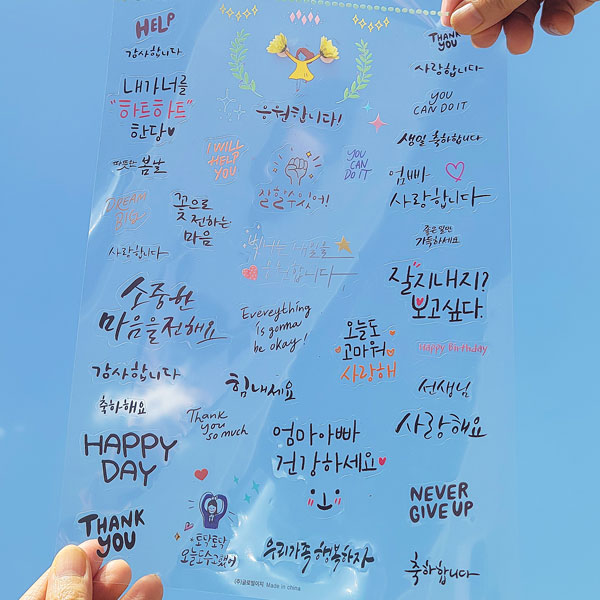 HELP
감사합니다
내가너를
"하트하트"
한당
따뜻한 봄날
DREAM
BIG
사랑합니다
꽃으로
전하는
마음
소중한
마음을전해요
감사합니다
축하해요
HAPPY
DAY
THANK
YOU
응원합니다!
I WILL
HELP
YOU
잘할수있어!
YOU
CAN
DO IT
Everything
is gonna
be okay!
힘내세요
Thank
you
so much
오늘도
고마워
사랑해
엄마아빠
건강하세요
토닥토닥
오늘도수고했어
우리가족행복하자
(주)글로벌이지 Made in china
THANK
YOU
사랑합니다
YOU
CAN DO IT
생일 축하합니다
엄빠
사랑합니다
좋은일만
가득하세요
잘지내지?
보고싶다.
Happy Birthday
선생님
사랑해요
NEVER
GIVE UP
축하합니다